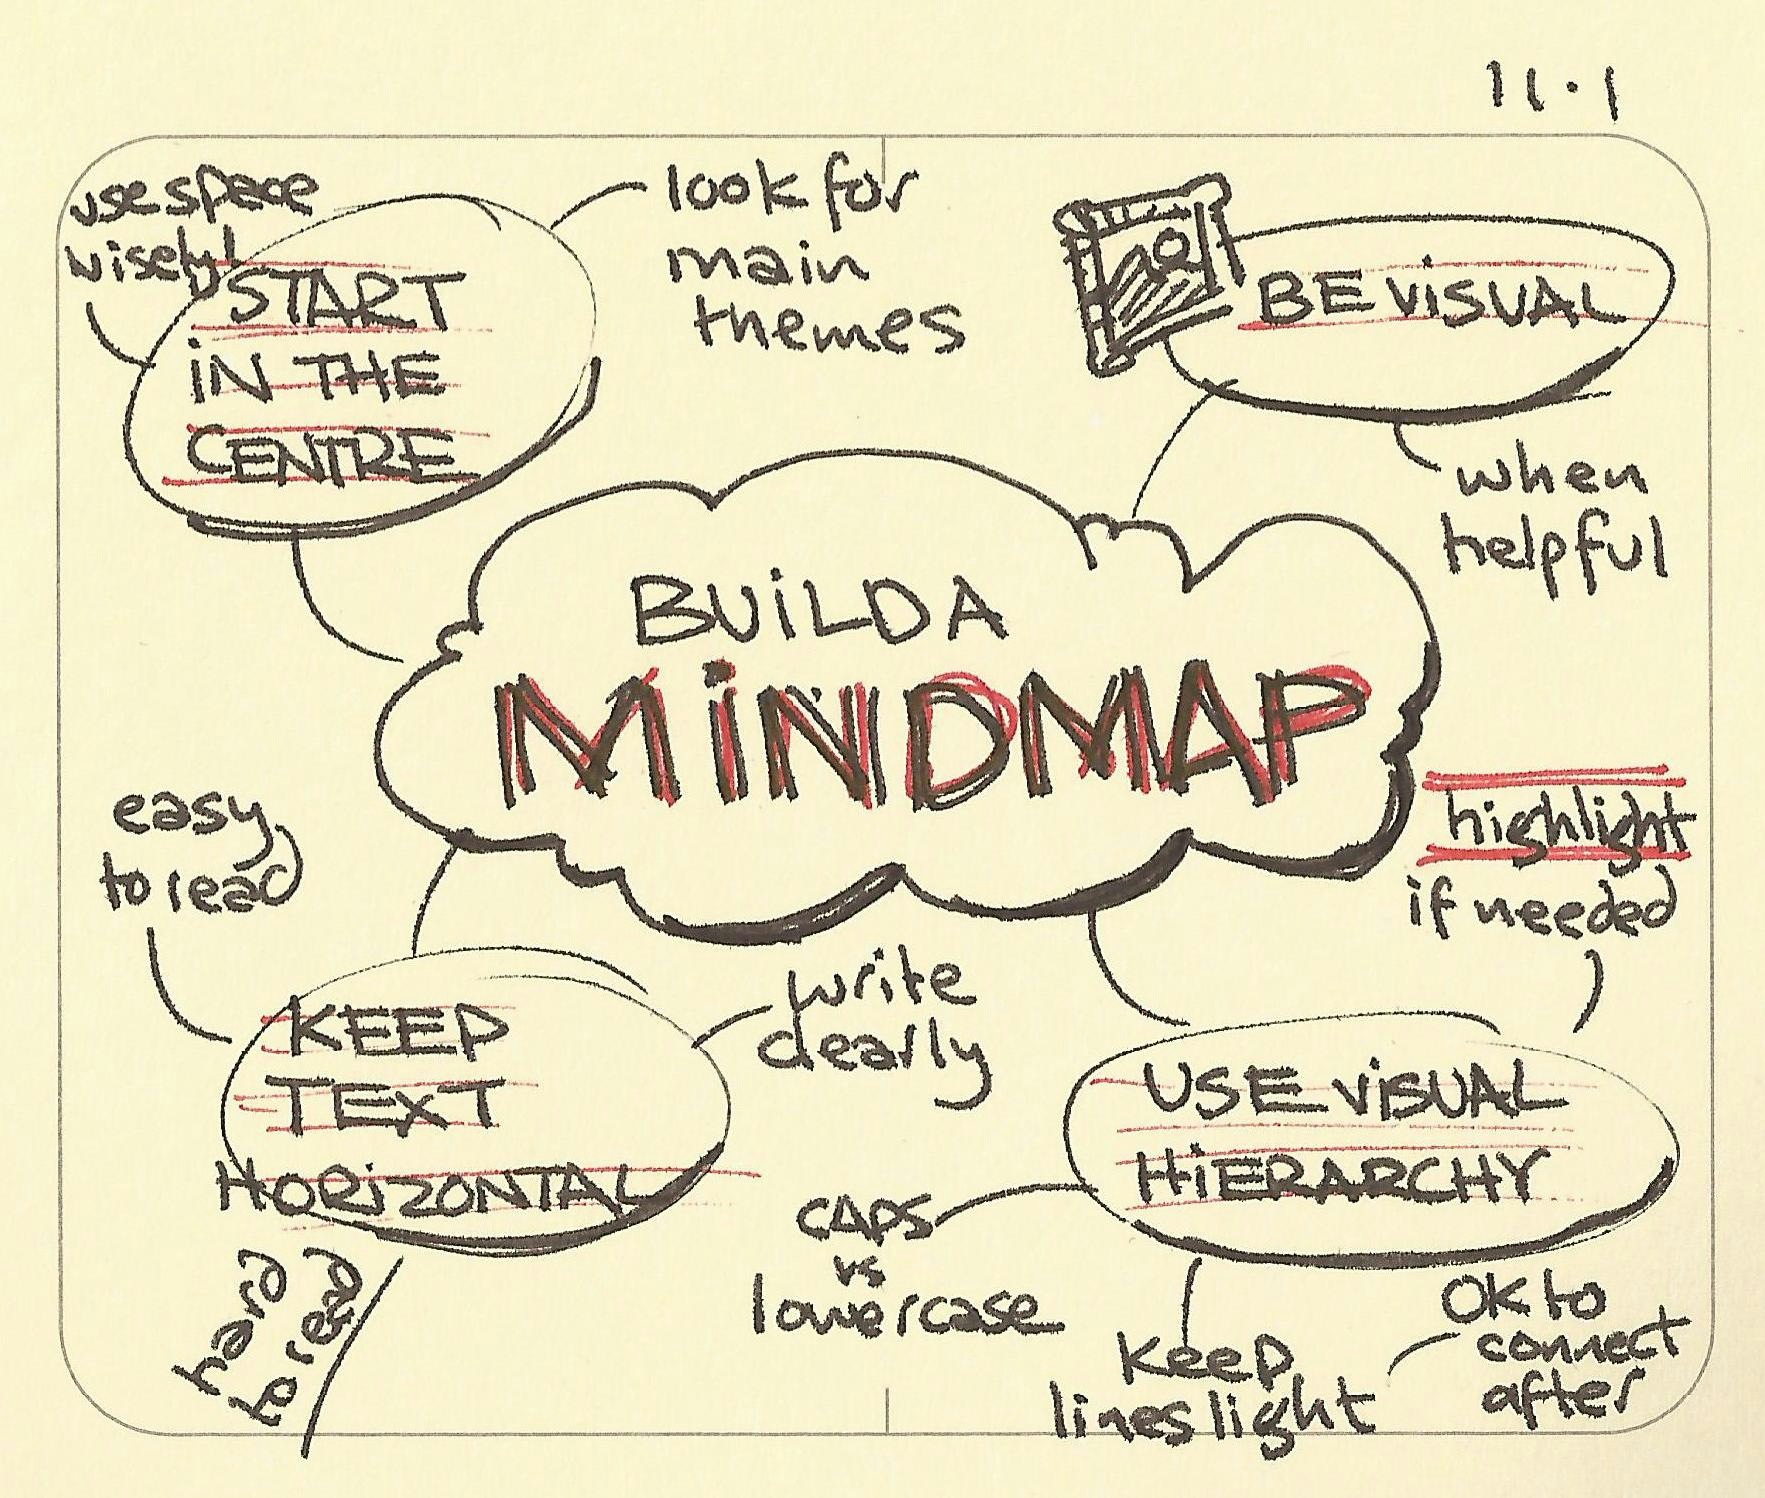 11.1
use space
wisely!
START
iN THE
CENTRE
look for
main
themes
BE ViSUAL
when
helpful
BUiLD A
MiNDMAP
highlight
if needed
easy
to read
KEEP
TEXT
HORiZONTAL
write
clearly
hard
to read
USE ViSUAL
HiERARCHY
CAPS
vs
lowercase
Keep
lines light
OK to
connect
after